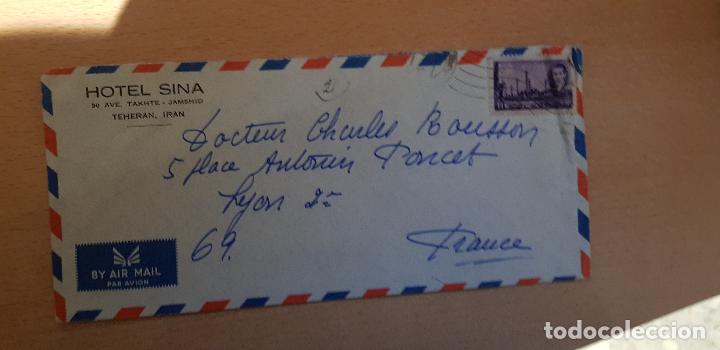 HOTEL SINA
90 AVE. TAKHTE - JAMSHID
TEHERAN, IRAN
2
Docteur Charles Bousson
5 place Antonin Poncet
Lyon 2e
69.
France
BY AIR MAIL
PAR AVION
todocoleccion
todocoleccion.net